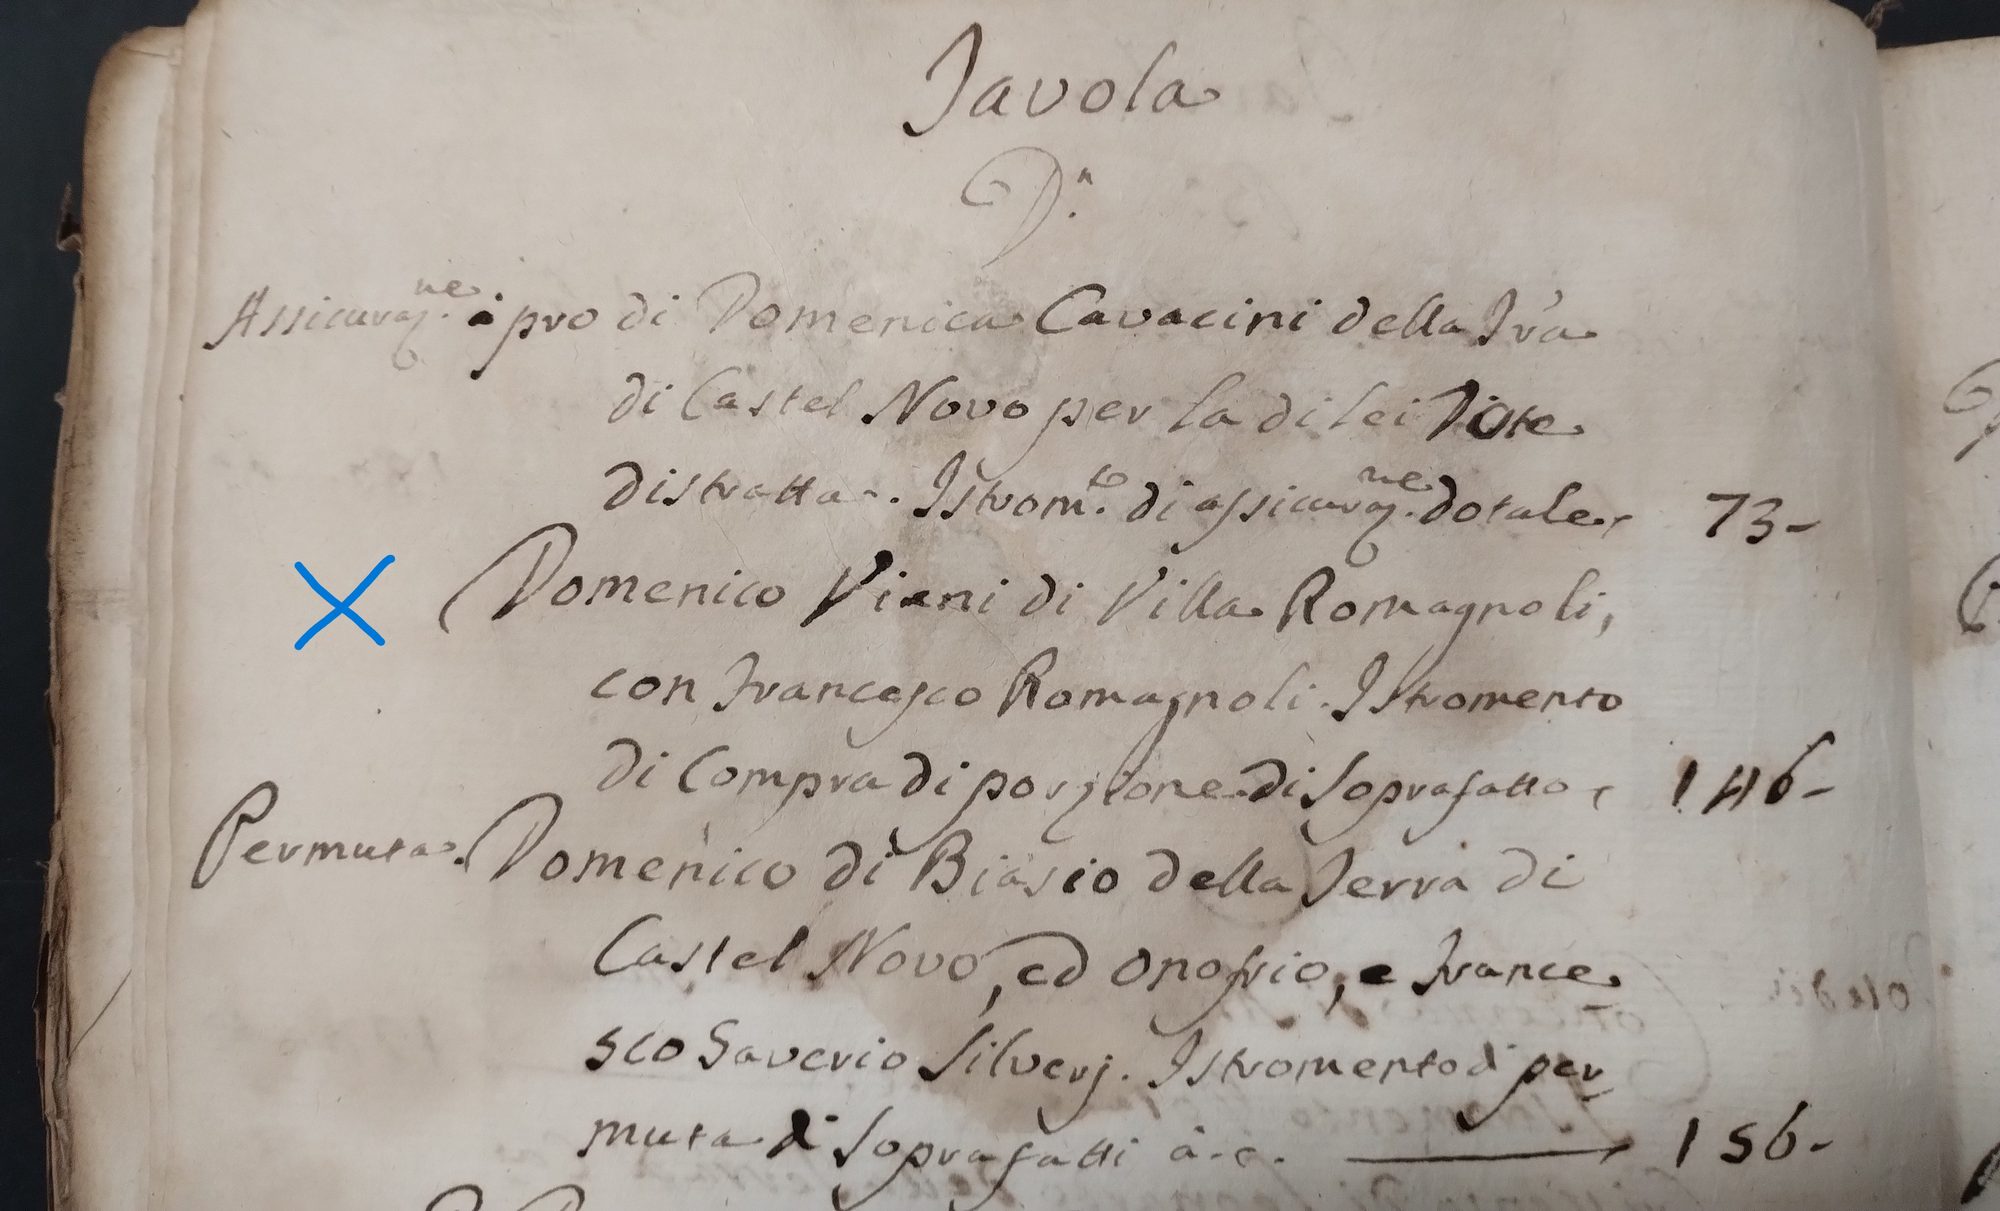 Tavola
D.
Assicuraz.ne à pro di Domenica Cavacini della T'ra
di Castel Novo per la di lei Dote
distratta. Istrom.to di assicuraz.ne dotale, 73-
Domenico Viani di Villa Romagnoli,
con Francesco Romagnoli. Istromento
di Compra di porzione di soprafatto, 146-
Permuta. Domenico di Biasio della Terra di
Castel Novo, ed Onofrio, e France
sco Saverio Silverj. Istromento di per
muta di soprafatti à.c. 156-